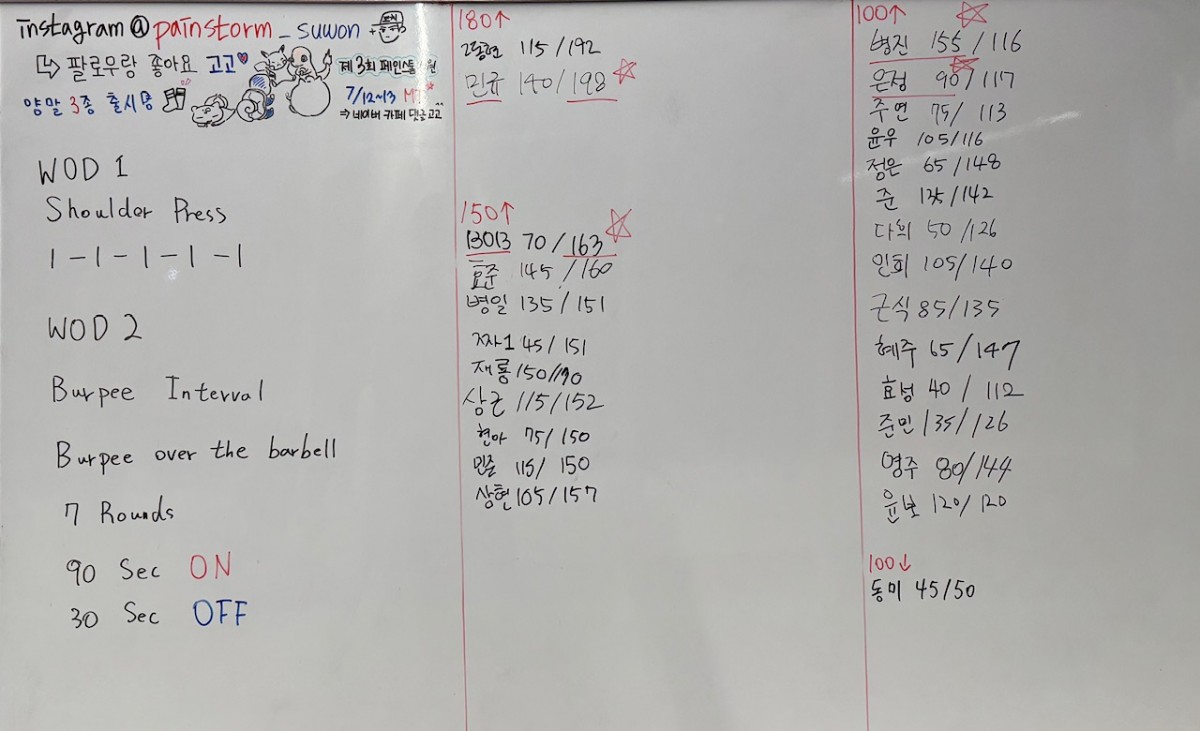 instagram@painstorm_suwon
↳ 팔로우랑 좋아요 고고♥
양말 3종 출시중
제3회 페인스톰 수원
7/12~13 MT
⇒ 네이버 카페 댓글고고
WOD 1
Shoulder Press
1-1-1-1-1
WOD 2
Burpee Interval
Burpee over the barbell
7 Rounds
90 Sec ON
30 Sec OFF
180↑
115/192
민규 140/198
150↑
70/163
효준 145/160
병일 135/151
45/151
재룡 150/190
상근 115/152
현아 75/150
민준 115/150
상현 105/157
100↑
병진 155/116
은정 90/117
주연 75/113
윤우 105/116
정은 65/148
준 135/142
다희 50/126
인희 105/140
근식 85/135
혜주 65/147
효성 40/112
준민 135/126
명주 80/144
윤보 120/120
100↓
동미 45/50